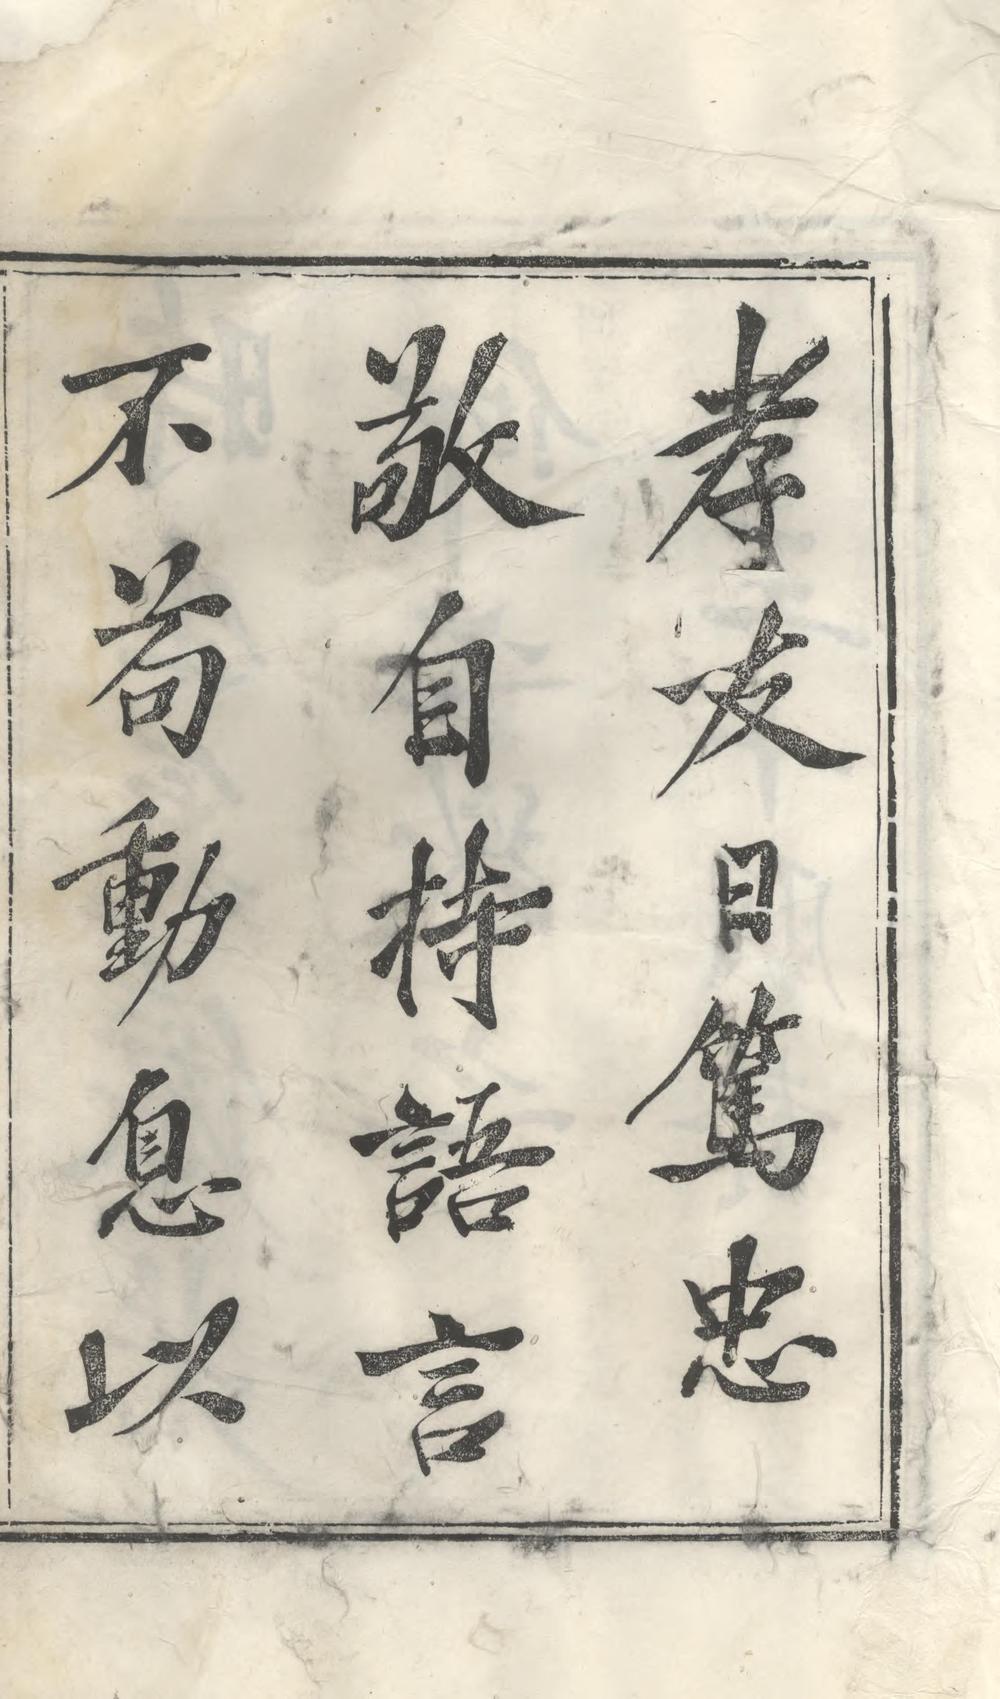 孝友日篤忠
敬自持語言
不苟動息以